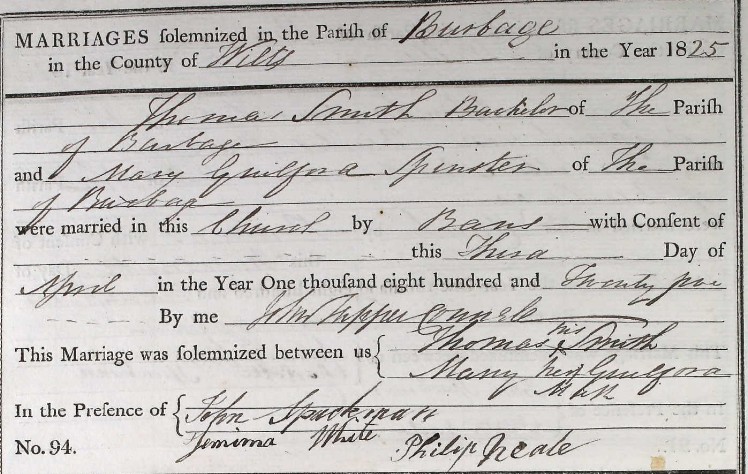 MARRIAGES solemnized in the Parish of Burbage
in the County of Wilts in the Year 1825
Thomas Smith Bachelor of The Parish
of Burbage
and Mary Guilford Spinster of The Parish
of Burbage
were married in this Church by Bans with Consent of
this Third Day of
April in the Year One thousand eight hundred and Twenty five
By me John
This Marriage was solemnized between us { Thomas his Smith
Mary her Guilford
Mark
In the Presence of { John Spackman
Jemima White Philip Neale
No. 94.